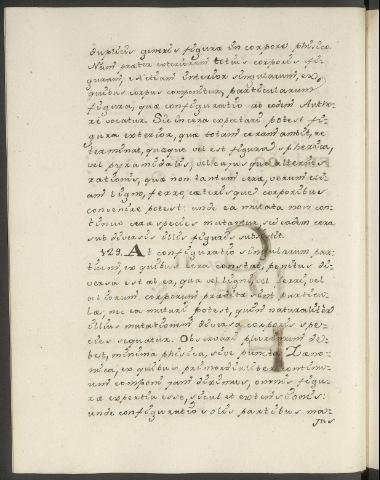 duplicis generis figura in corpore physico.
Nam praeter exteriorem totius corporis fi-
guram, est etiam interior singularum, ex
quibus corpus componitur, particularum
figura, quae configuratio ab eodem Autho-
re vocatur. Sic in cera expectari potest fi-
gura exterior, quae totam ceram ambit, ac
terminat, quaeque vel est figura sphaerica,
vel pyramidalis, vel cujusque alterius
rationis, quae non tantum cerae, verum eti-
am ligno, ferro caeterisque corporibus
convenire potest: unde ea mutata non con-
tinuo cerae species mutatur, sed eadem cera
sub diversis illis figuris subsistit.
129. At configuratio singularum par-
tium, ex quibus cera constat, penitus di-
versa est ab ea, qua vel ligni, vel ferri, vel
aliorum corporum praeditae sunt particu-
lae; nec ea mutari potest, quin naturaliter
illius mutationem diversa corporis spe-
cies sequatur. Observari plurimum de-
bet, minima physica, sive puncta Zeno-
nica, ex quibus primordialiter continu-
um componi jam diximus, omnis figu-
rae expertia esse, sicut et extensionis:
unde configuratio solis partibus ma-
jus